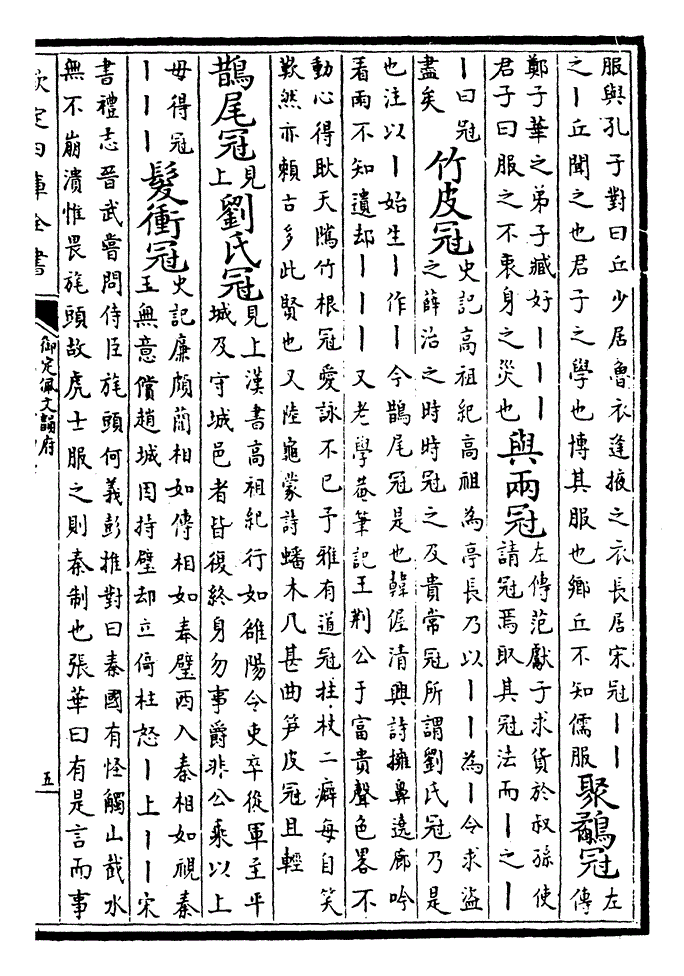 服與孔子對曰丘少居魯衣逢掖之衣長居宋冠丨丨
之丨丘聞之也君子之學也博其服也鄉丘不知儒服
聚鷸冠
左
傳
鄭子華之弟子臧好丨丨丨
君子曰服之不衷身之災也
與兩冠
左傳范獻子求貨於叔孫使
請冠焉取其冠法而丨之丨
丨曰冠
盡矣
竹皮冠
史記高祖紀高祖為亭長乃以丨丨為丨令求盜
之薛治之時時冠之及貴常冠所謂劉氏冠乃是
也注以丨始生丨作丨今鵲尾冠是也韓偓清興詩擁鼻遶廊吟
看雨不知遺却丨丨丨又老學菴筆記王荆公于富貴聲色畧不
動心得耿天隲竹根冠愛詠不已予雅有道冠拄杖二癖每自笑
歎然亦賴古多此賢也又陸龜蒙詩蟠木几甚曲笋皮冠且輕
鵲尾冠
見
上
劉氏冠
見上漢書高祖紀行如雒陽令吏卒從軍至平
城及守城邑者皆復終身勿事爵非公乘以上
毋得冠
丨丨丨
髮衝冠
史記廉頗藺相如傳相如奉璧西入秦相如視秦
王無意償趙城因持璧却立倚柱怒丨上丨丨宋
書禮志晉武嘗問侍臣旄頭何義彭推對曰秦國有怪觸山截水
無不崩潰惟畏旄頭故虎士服之則秦制也張華曰有是言而事
欽定四庫全書
御定佩文韻府
五